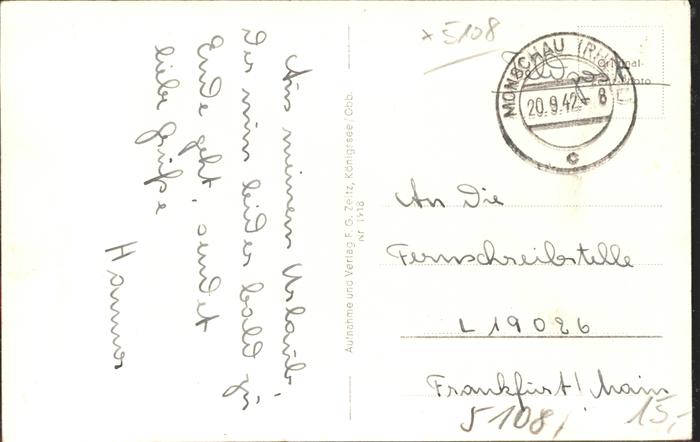 * 5108
Feldpost
Original-
Photo
MONSCHAU (RHLD)
20.9.42 - 8
c
Aus meinem Urlaub,
der nun leider bald zu
Ende geht, sendet
liebe Grüße
Hannes
Aufnahme und Verlag F. G. Zeitz, Königssee/Obb.
Nr. 1418
An die
Fernschreibstelle
L 19026
Frankfurt/Main
5108/
15,-